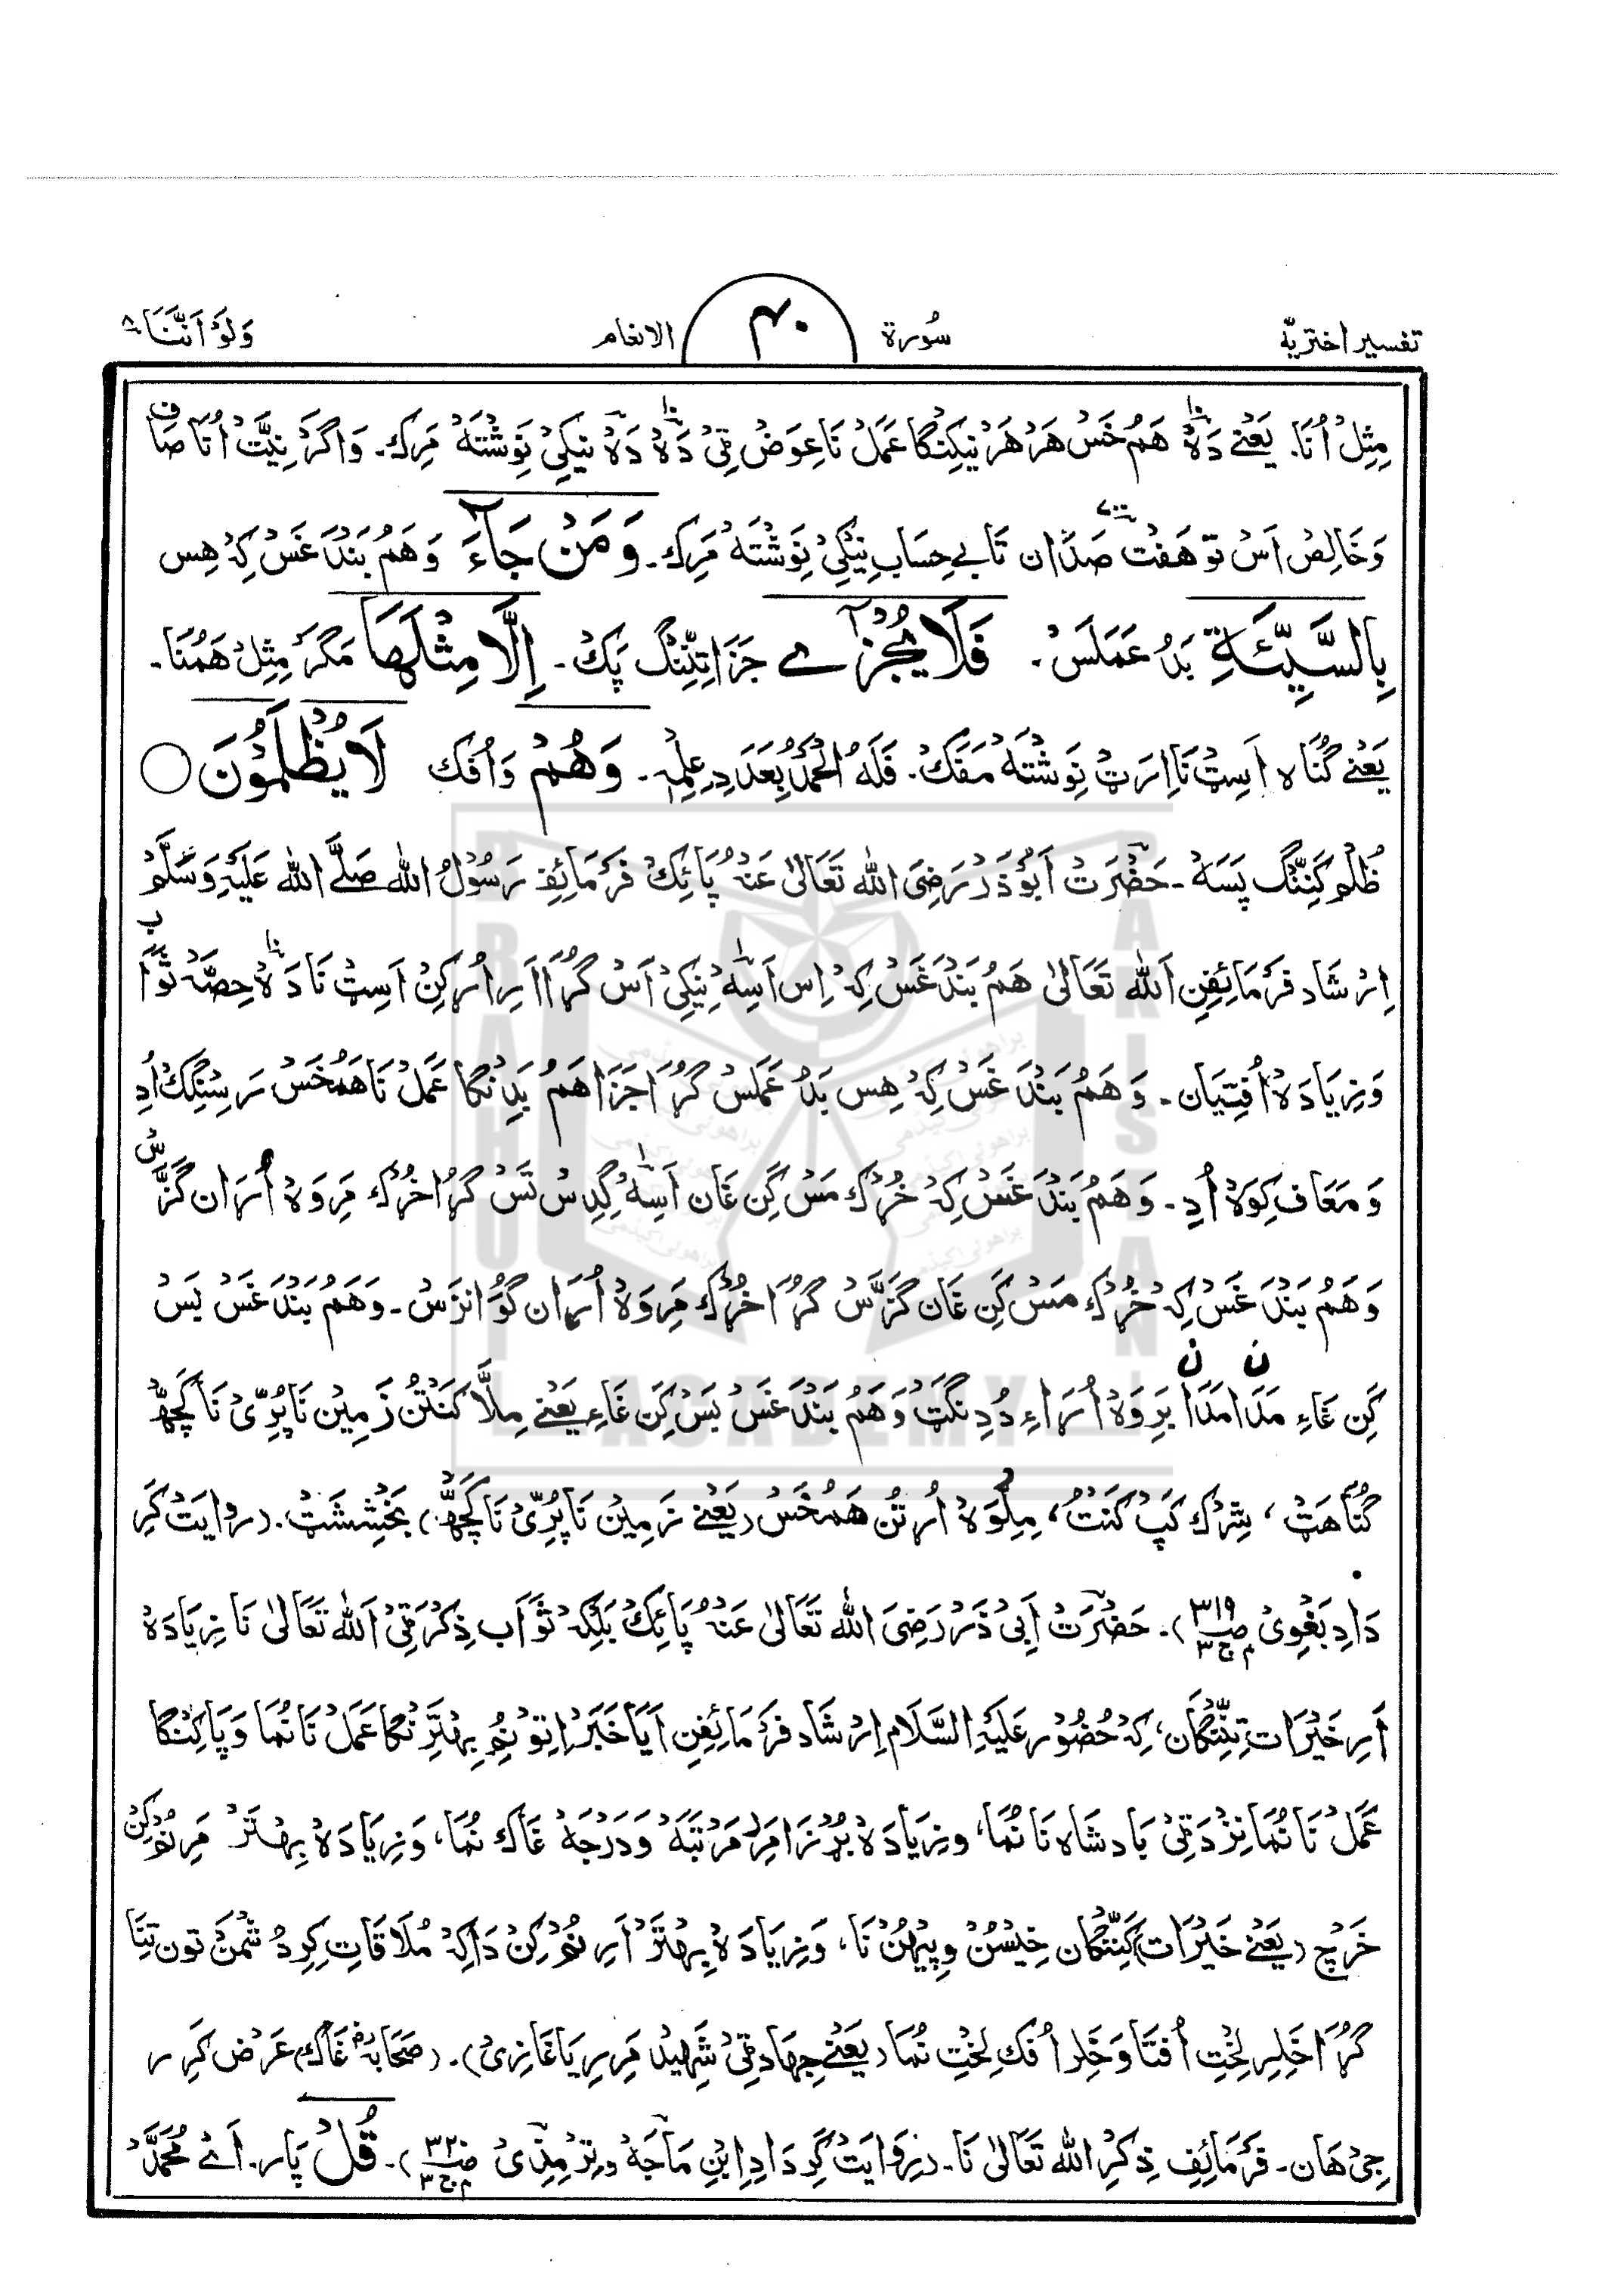 تفسیر اختریّه سُورة ۴۰ الانعام وَلَوْ اَنَّنَا ۸
مِثِلْ اُنَا. یَعْنے دَهْ هَمُ خَسْ هَرْ هَرْ نیکِنگا عَمَلْ نَا عِوَضْ ٹِیْ دَهْ دَهْ نیکِیْ نِوِشْتَهْ مَرِک۔ وَاگَرْ نِیَّتْ اُنَا صَاف
وَخَالِصْ اَسْ تو هَفْت صَدْان تَا بے حِسَابِ نیکِیْ نِوِشْتَهْ مَرِک۔ وَمَنْ جَآءَ وَهَمُ بَنْدَغَسْ کِهْ هِس
بِالسَّیِّئَةِ بَدُ عَمَلَسْ. فَلَا یُجْزٰۤے جَزَا تِنِّنْگ پَکْ۔ اِلَّا مِثْلَهَا مَگَرْ مِثِلْ هَمُنَا۔
یَعْنے گُنَاه اَسِٹْ نَا اِرَٹْ نِوِشْتَهْ مَفَکْ. فَلَهُ الْحَمْدُ بِعَدَدِ عِلْمِهٖ۔ وَهُمْ وَاُفْک لَا یُظْلَمُوْنَ ○
ظُلْم کَنِنِّنْگ پَسَهْ۔ حَضْرَتْ اَبُوْذَرْ رَضِیَ اللّٰه تَعَالیٰ عَنْهُ پَائِکْ فَرْمَائِفِ رَسُوْلُ اللّٰه صَلَّے اللّٰه عَلَیْهِ وَسَلَّمْ
اِرْشَاد فَرْمَائِفِن اَللّٰه تَعَالیٰ هَمُ بَنْدَغَسْ کِهْ هِس اَسِهْ نِیکِیْ اَسْ گُرَا اَرِ اُرْکِنْ اَسِٹْ نَا دَهْ حِصَّهْ ثَوَاب
وَزِیَادَهْ اُفِتِیَان۔ وَهَمُ بَنْدَغَسْ کِهْ هِس بَدُ عَمَلَسْ گُرَا جَزَا هَمُ بَدِنْگا عَمَلْ نَا هَمُخَسْ رَسِنْگِکْ اُدِ
وَمَعَاف کِوَهْ اُدِ۔ وَهَمُ بَنْدَغَسْ کِهْ خُرْک مَسْ کَنِ غَان اَسِهْ گِدِسْ تَسْ گُرَا خُرْک مَرِوَهْ اُرَان گَزَّسْ
وَهَمُ بَنْدَغَسْ کِهْ خُرْک مَسْ کَنِ غَان گَزَّسْ گُرَا خُرْک مَرِوَهْ اُرَان گُوَانزَسْ۔ وَهَمُ بَنْدَغَسْ بَسْ
کَنِ غَاءِ مَدَان مَدَان بَرِوَهْ اُرَاءِ دُدِنگَٹْ وَهَمُ بَنْدَغَسْ بَسْ کَنِ غَاءِ یَعْنے مِلَّا کَنَتُنْ زَمِیْن نَا پُرِّیْ نَا کَچَهْ
گُنَاهَٹْ، شِرْک کَپ کَنَتْ، مِلِوَهْ اُرْتُن هَمُخَسْ (یَعْنے زَمِیْن نَا پُرِّیْ نَا کَچَهْ) بَخْشِشَٹْ. (روایَتْ کَرِ
دَادِ بَغْوِیْ صـ۳۱۹ م ج۳)۔ حَضْرَتْ اَبِیْ ذَرْ رَضِیَ اللّٰه تَعَالیٰ عَنْهُ پَائِکْ بَلْکِهْ ثَوَاب ذِکْر ٹِیْ اَللّٰه تَعَالیٰ نَا زِیَادَهْ
اَرِ خَیْرَات تِنِّنْگان، کِهْ حُضُوْر عَلَیْهِ السَّلَام اِرْشَاد فَرْمَائِفِن اَیَا خَبَرْ اِتِوْ نُمِ بِهْتَرِنگا عَمَلْ نَا نُمَا وَپَاکِنگا
عَمَلْ نَا نُمَا نِزْد ٹِیْ بَادشَاه نَا نُمَا، وَزِیَادَهْ بُرْزَا مَرِ مَرْتَبَهْ وَدَرْجَهْ غَاک نُمَا، وَزِیَادَهْ بِهْتَرْ مَرِ نُمْ کِنْ
خَرْچ (یَعْنے خَیْرَات) کَنِنْگان خِیْسُنْ وپِیْهُنْ نَا، وَزِیَادَهْ بِهْتَرْ اَرِ نُمْ کِنْ دَاکِهْ مُلَاقَات کِرِ دُشْمَنْ تون تِنَا
گُرَا خَلِر لِخْتِ اُفْتَا وَخَلِر اُفْک لِخْتِ نُمَا (یَعْنے جِهَاد ٹِیْ شَهِیْد مَرِر یَا غَازِیْ)۔ (صَحَابَهْؓ غَاک) عَرْض کَرِر
جِیْ هَان۔ فَرْمَائِفِ ذِکْرِ اللّٰه تَعَالیٰ نَا۔ (رِوَایَتْ کَرِ دَادِ اِبْنِ مَاجَهْ وَتِرْمِذِیْ صـ۳۲۰ م ج۳)۔ قُلْ پَار۔ اَے مُحَمَّدْ
BRAHUI ACADEMY PAKISTAN